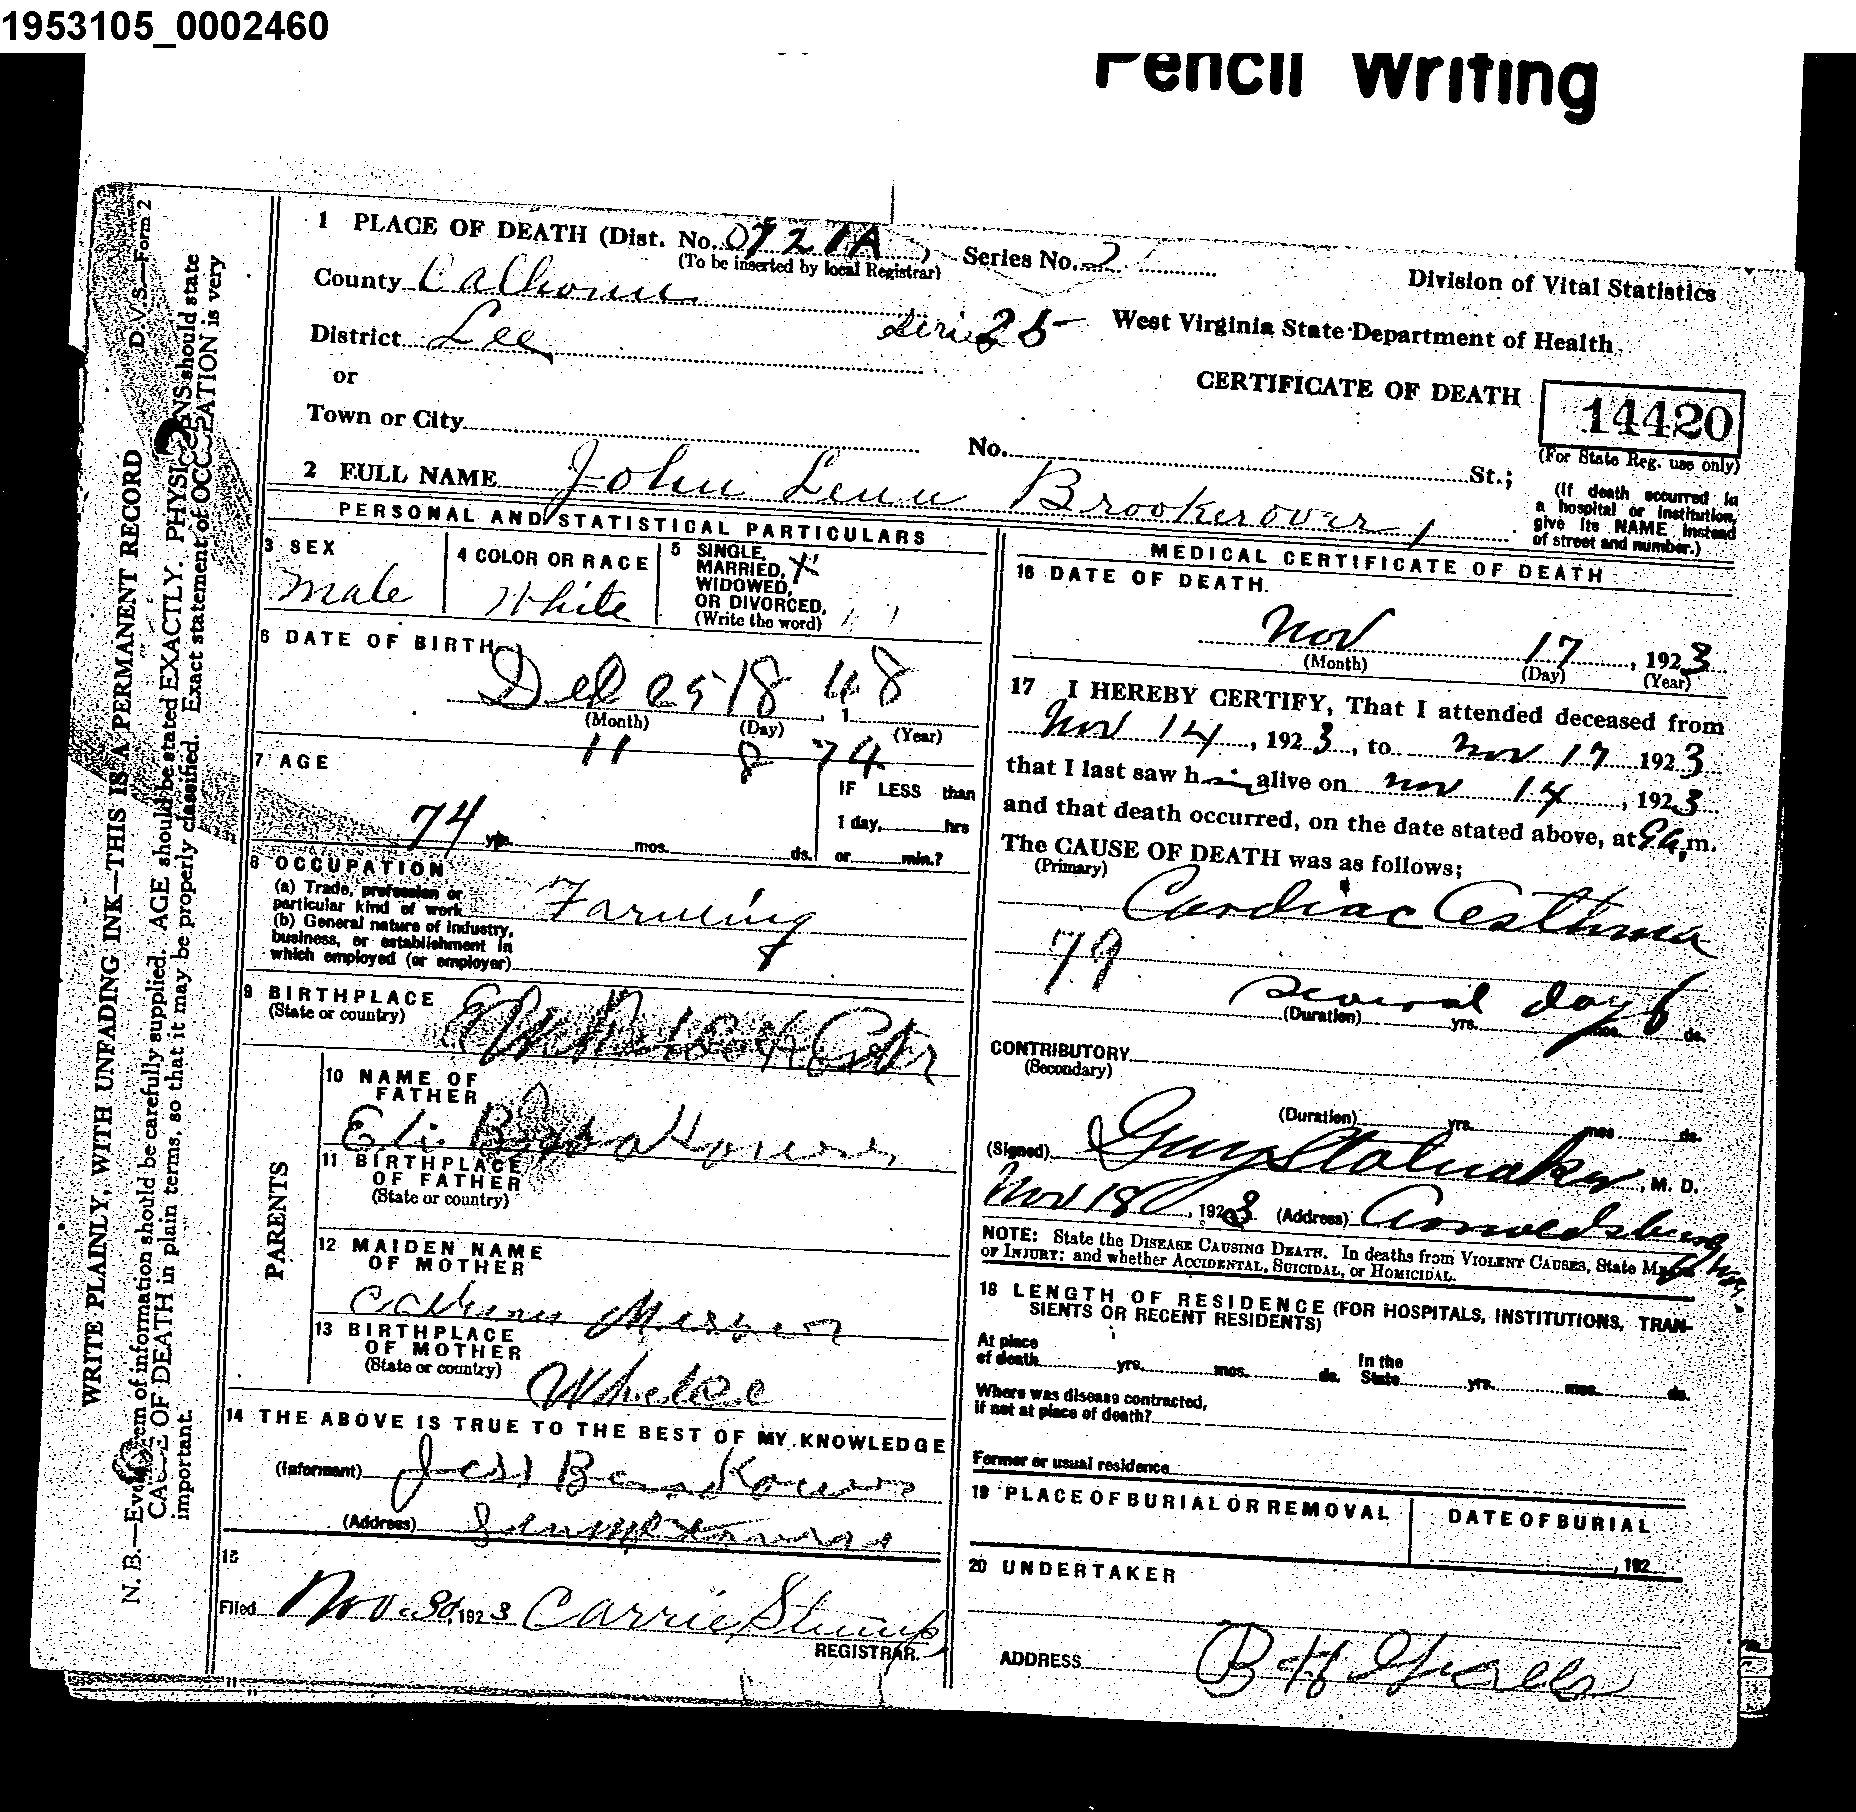 1953105_0002460
Pencil Writing
1 PLACE OF DEATH (Dist. No. 0721A) Series No. 2
(To be inserted by local Registrar)
Division of Vital Statistics
County Calhoun
District Lee
West Virginia State Department of Health
or
CERTIFICATE OF DEATH
14420
(For State Reg. use only)
Town or City
No. St.;
(If death occurred in
a hospital or institution,
give its NAME instead
of street and number.)
2 FULL NAME John Brookover
PERSONAL AND STATISTICAL PARTICULARS
3 SEX
Male
4 COLOR OR RACE
White
5 SINGLE,
MARRIED, X
WIDOWED,
OR DIVORCED,
(Write the word)
6 DATE OF BIRTH
Dec 25 1848
(Month) (Day) (Year)
11 8 74
7 AGE
74 yrs. mos. ds.
IF LESS than
1 day, hrs
or min.?
8 OCCUPATION
(a) Trade, profession or
particular kind of work
(b) General nature of industry,
business, or establishment in
which employed (or employer)
Farming
9 BIRTHPLACE
(State or country)
PARENTS
10 NAME OF
FATHER
Eli
11 BIRTHPLACE
OF FATHER
(State or country)
12 MAIDEN NAME
OF MOTHER
13 BIRTHPLACE
OF MOTHER
(State or country)
14 THE ABOVE IS TRUE TO THE BEST OF MY KNOWLEDGE
(Informant)
(Address)
15
Filed Nov. 30, 1923 Carrie Stump
REGISTRAR.
MEDICAL CERTIFICATE OF DEATH
16 DATE OF DEATH.
Nov 17, 1923
(Month) (Day) (Year)
17 I HEREBY CERTIFY, That I attended deceased from
Nov 14, 1923, to Nov 17 1923
that I last saw him alive on Nov 14, 1923
and that death occurred, on the date stated above, at 9 a,m.
The CAUSE OF DEATH was as follows;
(Primary)
Cardiac Asthma
79
several days
(Duration) yrs. mos. ds.
CONTRIBUTORY
(Secondary)
(Duration) yrs. mos. ds.
(Signed) Guy Stalnaker, M. D.
Nov 18, 1923 (Address) Arnoldsburg
NOTE: State the DISEASE CAUSING DEATH. In deaths from VIOLENT CAUSES, State MEANS
OF INJURY: and whether ACCIDENTAL, SUICIDAL, or HOMICIDAL.
18 LENGTH OF RESIDENCE (FOR HOSPITALS, INSTITUTIONS, TRAN-
SIENTS OR RECENT RESIDENTS)
At place
of death yrs. mos. ds.
In the
State yrs. mos. ds.
Where was disease contracted,
if not at place of death?
Former or usual residence
19 PLACE OF BURIAL OR REMOVAL
DATE OF BURIAL
, 192
20 UNDERTAKER
ADDRESS
D.V.S.—Form 2
WRITE PLAINLY, WITH UNFADING INK—THIS IS A PERMANENT RECORD
N. B.—Every item of information should be carefully supplied. AGE should be stated EXACTLY. PHYSICIANS should state
CAUSE OF DEATH in plain terms, so that it may be properly classified. Exact statement of OCCUPATION is very
important.